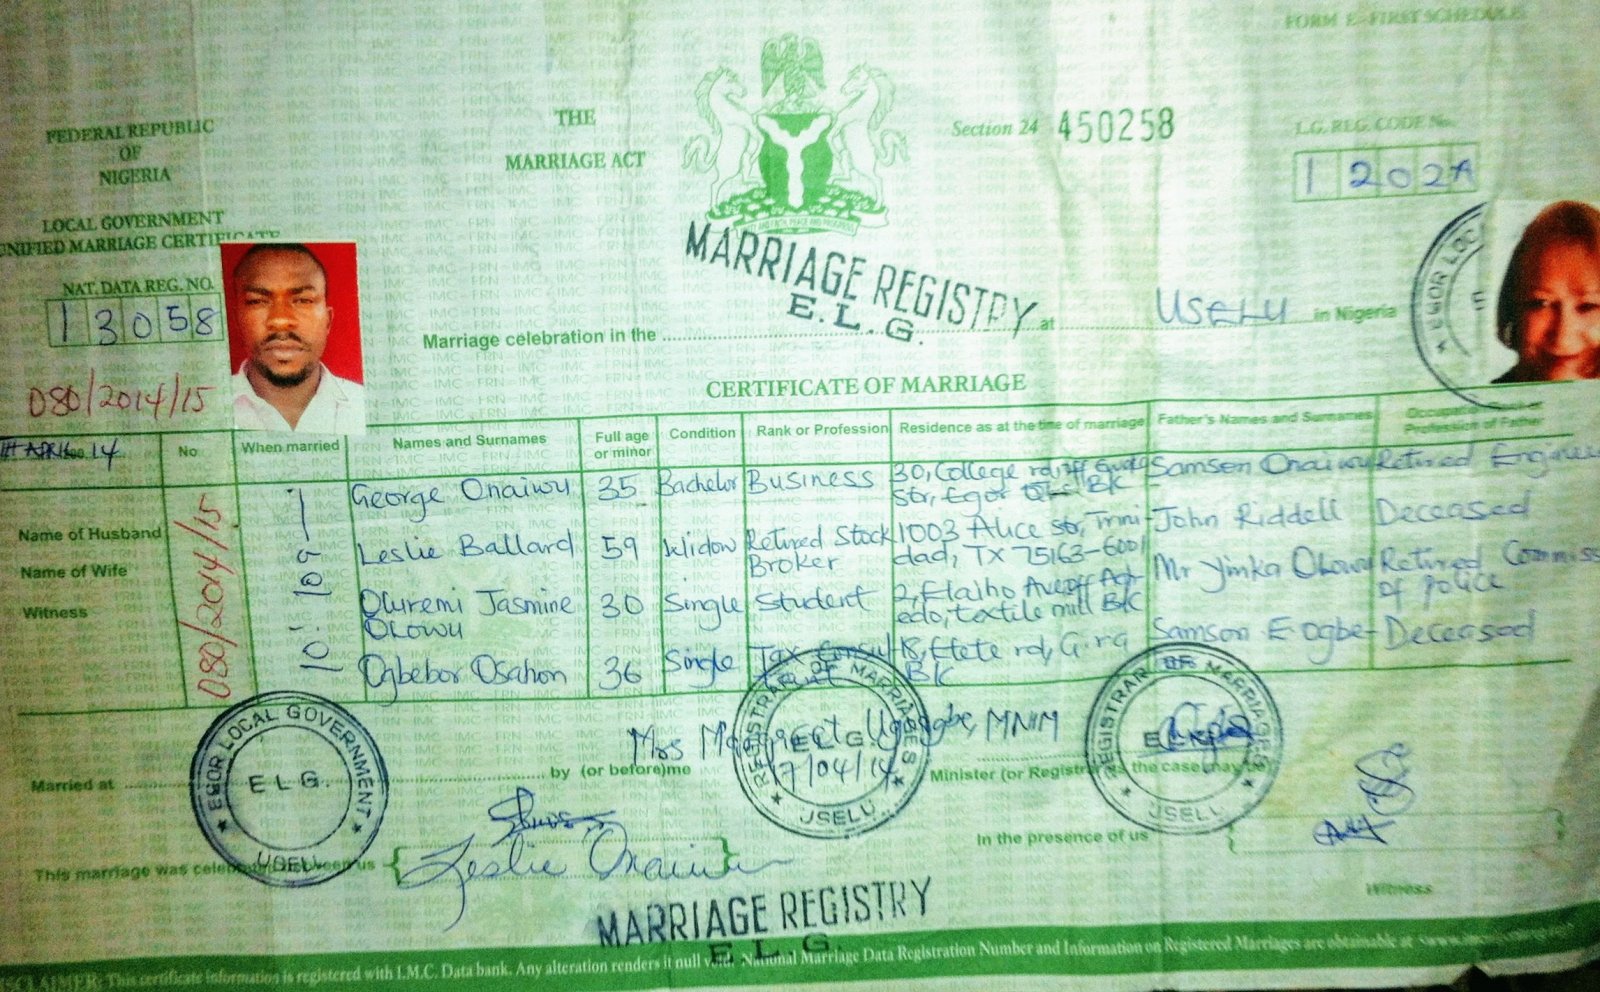 FORM E - FIRST SCHEDULE
FEDERAL REPUBLIC
OF
NIGERIA
THE
MARRIAGE ACT
Section 24 450258
L.G. REG. CODE No.
1 202A
LOCAL GOVERNMENT
UNIFIED MARRIAGE CERTIFICATE
NAT. DATA REG. NO.
13058
MARRIAGE REGISTRY
E.L.G.
Marriage celebration in the at USELU in Nigeria
EGOR LOCAL
080/2014/15
CERTIFICATE OF MARRIAGE
APRIL 14
No When married Names and Surnames Full age or minor Condition Rank or Profession Residence as at the time of marriage Father's Names and Surnames Profession of Father
Name of Husband George Onaiwu 35 Bachelor Business 30, College rd, off str, Egor B/C Samson Onaiwu Retired Engineer
Name of Wife Leslie Ballard 59 Widow Retired Stock Broker 1003 Alice str, Trinidad, TX 75163-6001 John Riddell Deceased
Witness Oluremi Jasmine Olowu 30 Single Student 2, textile mill B/C Mr Yinka Olowu Retired Commiss of Police
Ogbebor Osahon 36 Single Tax Consultant 18, Etete rd, G.r.a B/C Samson E Ogbe- Deceased
080/2014/15
EGOR LOCAL GOVERNMENT
E L G.
USELU
Mrs Margaret MNIM
REGISTRAR OF MARRIAGES
E L G
17/04/14
USELU
REGISTRAR OF MARRIAGES
USELU
Married at by (or before) me Minister (or Registrar) as the case may be
This marriage was celebrated between us
Leslie Onaiwu
In the presence of us
Witness
MARRIAGE REGISTRY
E.L.G.
DISCLAIMER: This certificate information is registered with I.M.C. Data bank. Any alteration renders it null void. National Marriage Data Registration Number and Information on Registered Marriages are obtainable at